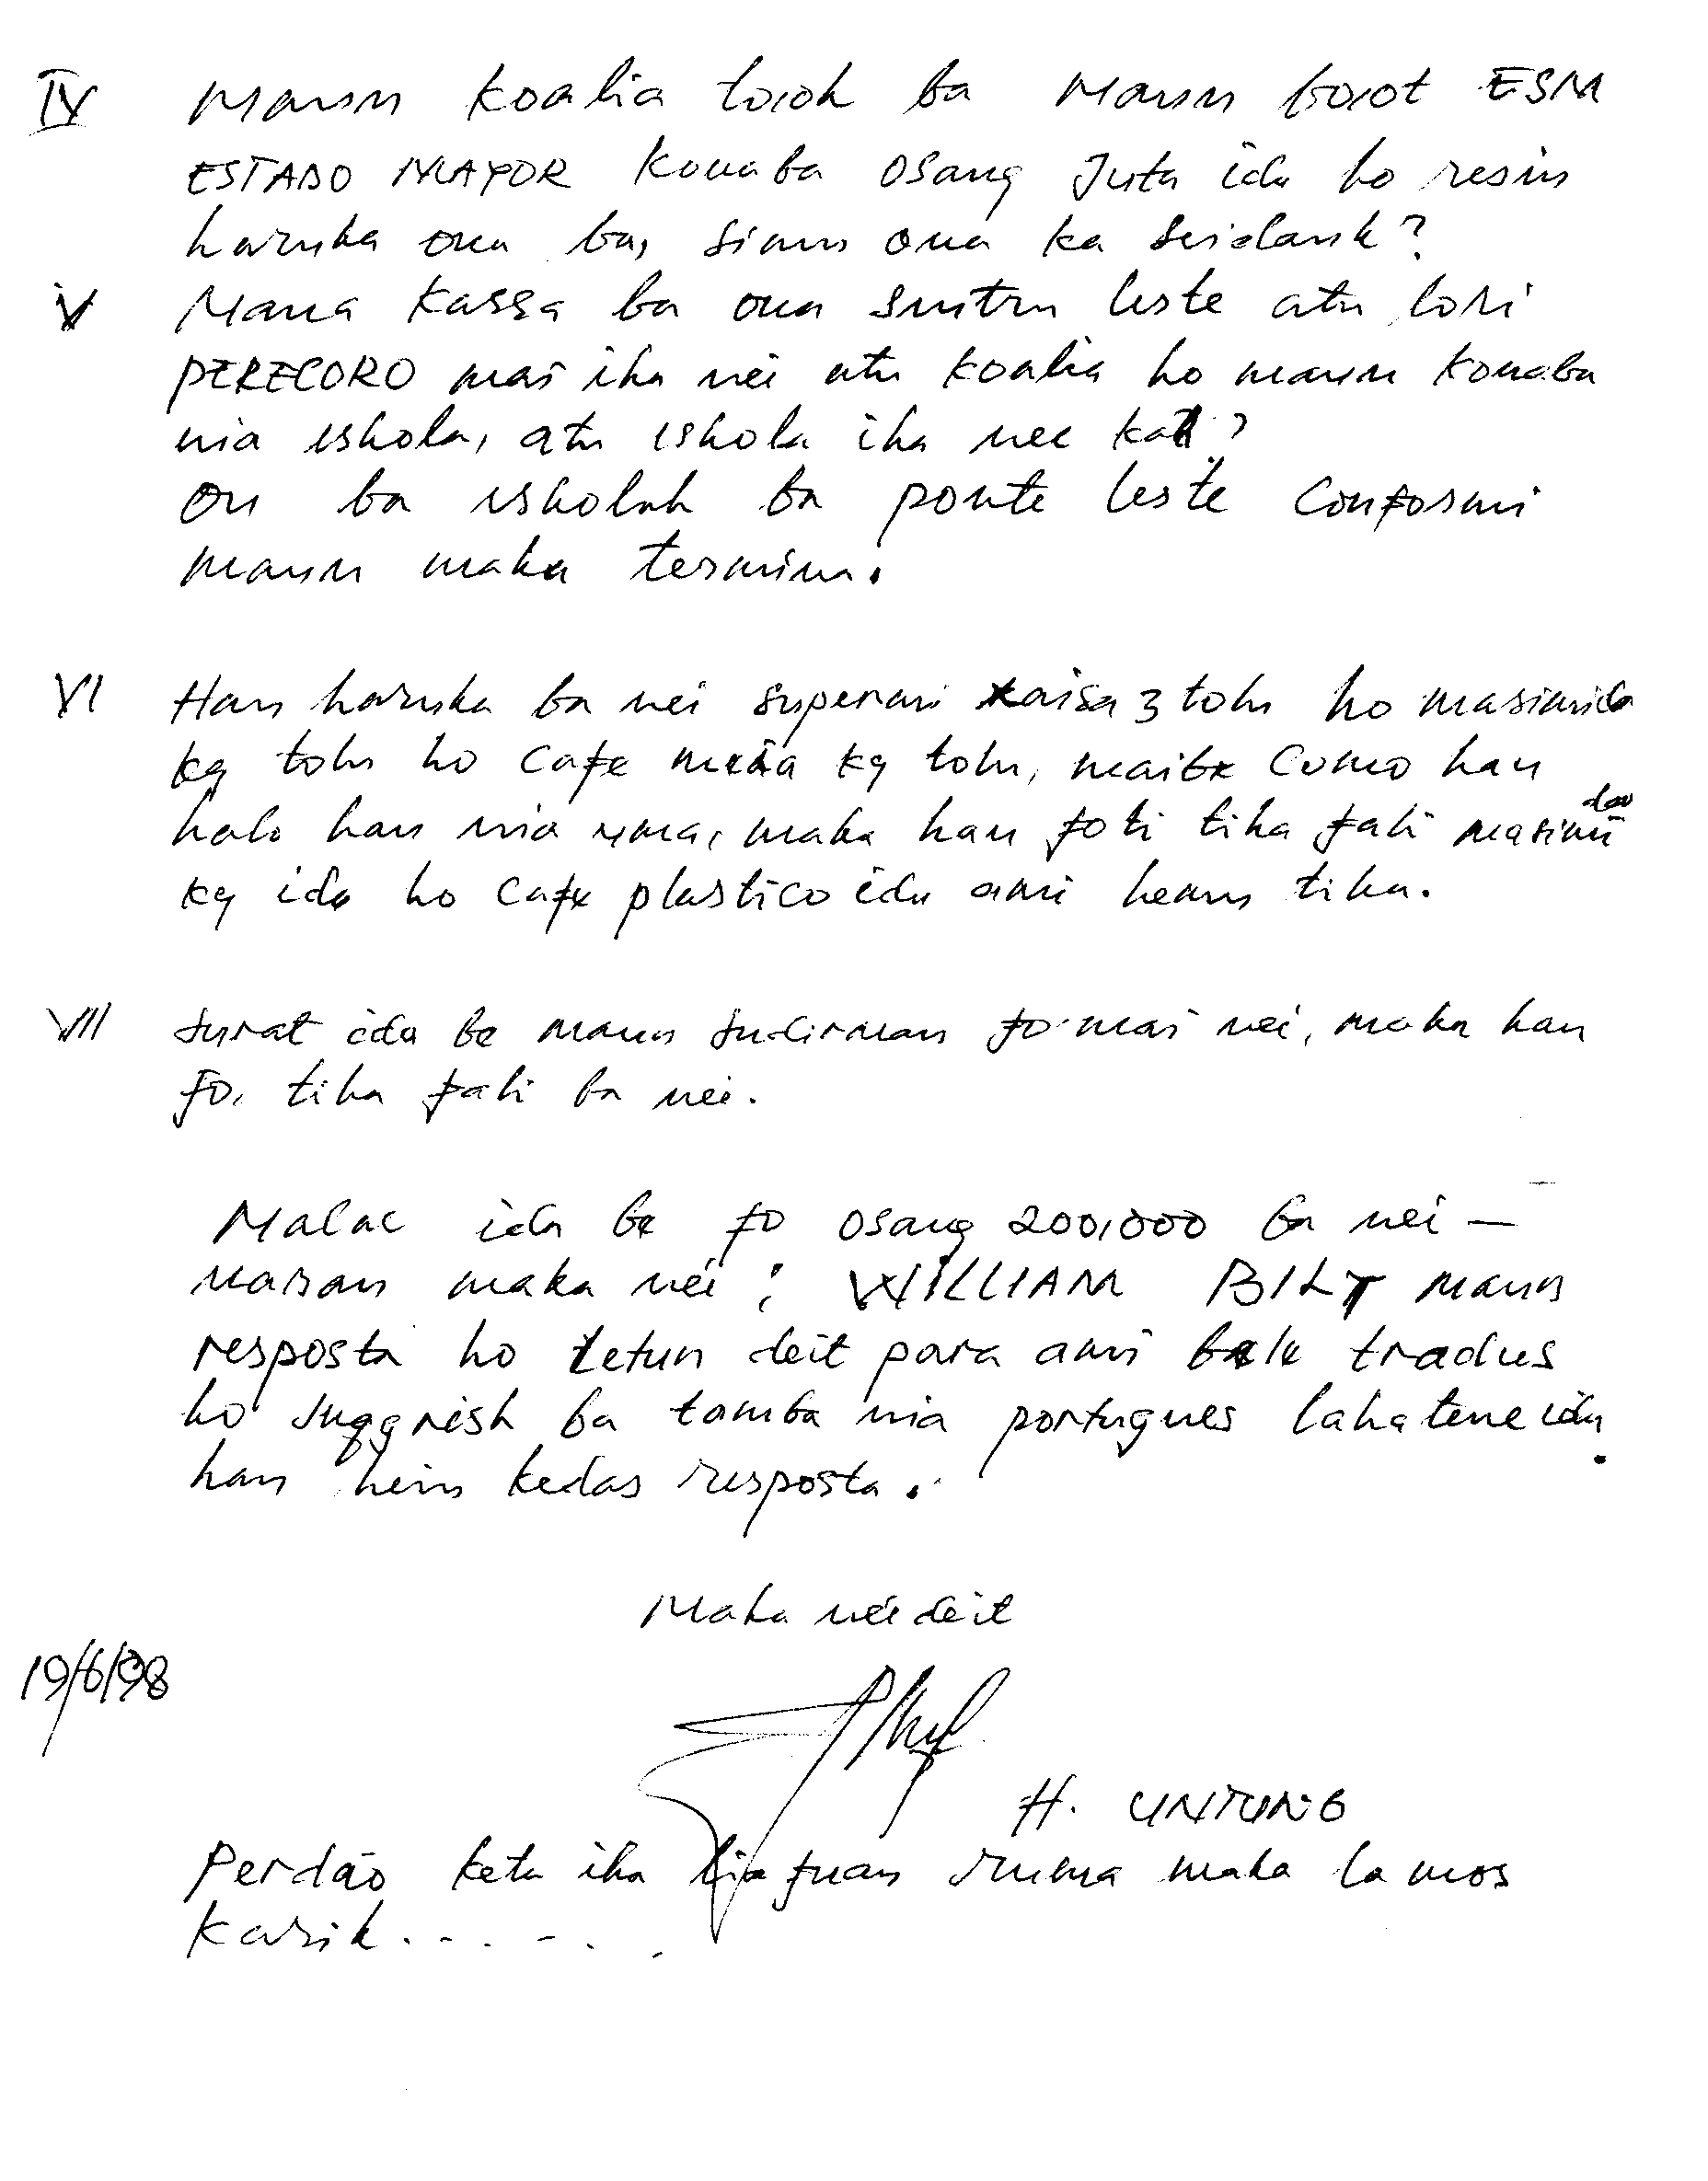 IV Maun koalia took ba Maun boot ESM
ESTADO MAYOR konaba osang Juta ida ho resin
haruka ona ba, simu ona ka seidauk?
V Mana Kassa ba ona sentru leste atu lori
PERECORO mai iha nei atu koalia ho maun konaba
nia eskola, atu eskola iha nee kah?
Ou ba eskolah ba ponte leste conformi
maun maka termina.
VI Hau haruka ba nei supermi kaisa 3 tolu ho masimida
kg tolu ho cafe kg tolu, maibe como hau
halo hau nia uma, maka hau foti tiha fali masimi
kg ida ho cafe plastico ida ami hemu tiha.
VII Surat ida be maun Sudirman fo mai nei, maka hau
fo, tiha fali ba nei.
Malae ida be fo osang 200,000 ba nei —
naran maka nei ; WILLIAM maun
resposta ho tetun deit para ami bele tradus
ho ba tamba nia portugues lahatene ida
hau hein kedas resposta.
Maka néé deit
19/6/98
H. UNTUNG
Perdão keta iha liafuan ruma maka la mos
karik......